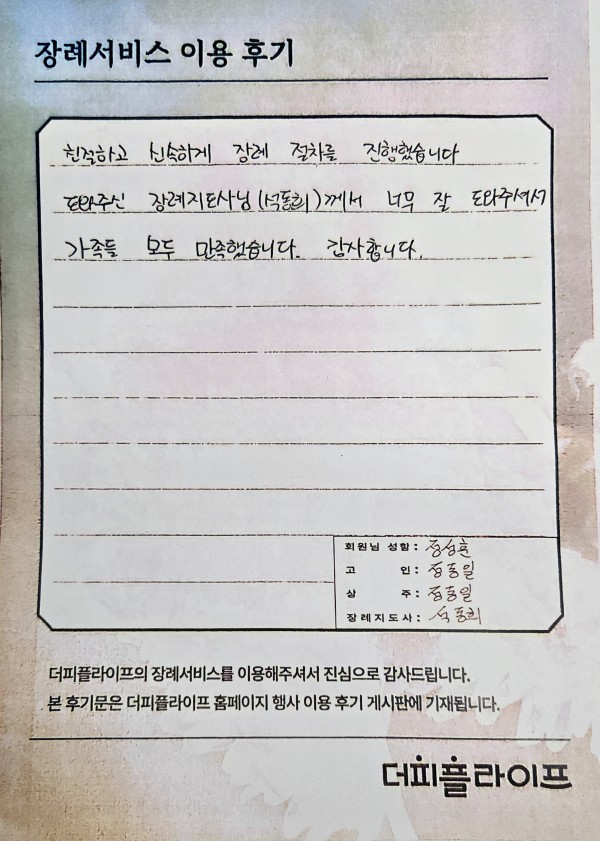 장례서비스 이용 후기
친절하고 신속하게 장례 절차를 진행했습니다
도와주신 장례지도사님(석동희)께서 너무 잘 도와주셔서
가족들 모두 만족했습니다. 감사합니다.
회원님 성함: 정성훈
고 인: 정동일
상 주: 정동일
장례지도사: 석동희
더피플라이프의 장례서비스를 이용해주셔서 진심으로 감사드립니다.
본 후기문은 더피플라이프 홈페이지 행사 이용 후기 게시판에 기재됩니다.
더피플라이프